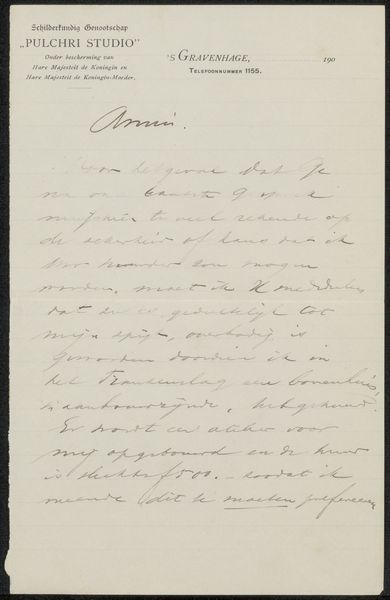 Schilderkundig Genootschap
„PULCHRI STUDIO”
Onder bescherming van
Hare Majesteit de Koningin en
Hare Majesteit de Koningin-Moeder.
'S GRAVENHAGE, 190
TELEFOONNUMMER 1155.
Amice.
Voor het geval dat Je
na ons laatste gesprek
te veel rekende op
de zekerheid of kans dat ik
zou mogen
worden, moet ik U mededeelen
dat dit gedeeltelijk tot
mijn spijt, overbodig is
geworden doordien ik in
het een bovenhuis,
in aanbouw zijnde, heb gehuurd.
Er wordt een atelier voor
mij opgebouwd en de huur
is slechts f500.- zoodat ik
meende dit te moeten prefereeren